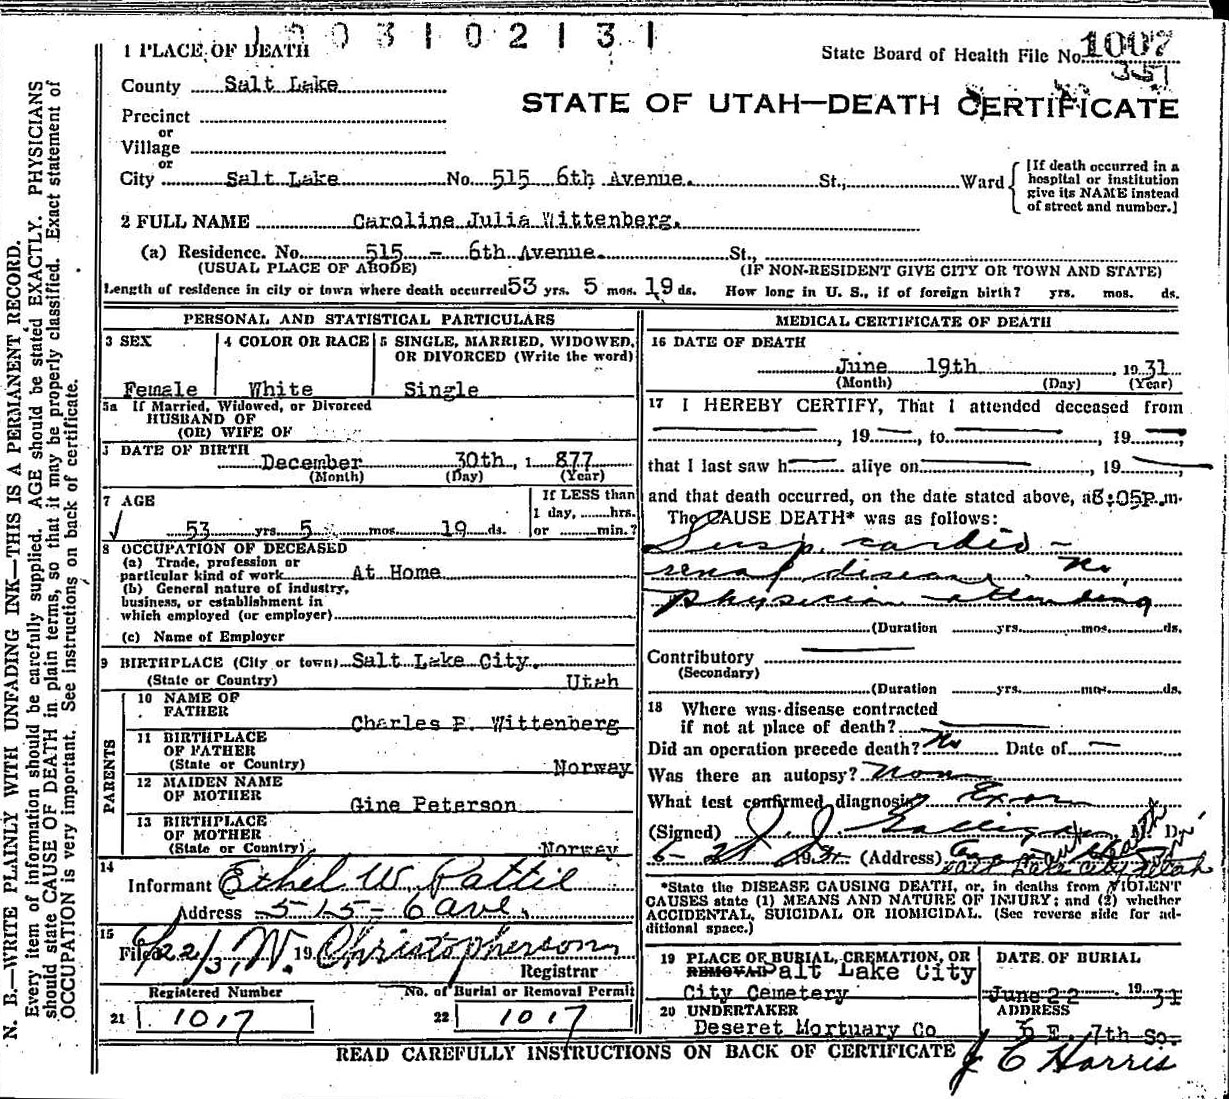 1003102131
1 PLACE OF DEATH
State Board of Health File No. 1007
357
County Salt Lake
STATE OF UTAH—DEATH CERTIFICATE
Precinct
or
Village
or
City Salt Lake No. 515 6th Avenue. St., Ward
[If death occurred in a hospital or institution give its NAME instead of street and number.]
2 FULL NAME Caroline Julia Wittenberg.
(a) Residence. No. 515 - 6th Avenue. St.,
(USUAL PLACE OF ABODE) (IF NON-RESIDENT GIVE CITY OR TOWN AND STATE)
Length of residence in city or town where death occurred 53 yrs. 5 mos. 19 ds. How long in U. S., if of foreign birth? yrs. mos. ds.
PERSONAL AND STATISTICAL PARTICULARS
3 SEX
Female
4 COLOR OR RACE
White
5 SINGLE, MARRIED, WIDOWED,
OR DIVORCED (Write the word)
Single
5a If Married, Widowed, or Divorced
HUSBAND OF
(OR) WIFE OF
DATE OF BIRTH
December 30th, 1 877
(Month) (Day) (Year)
7 AGE
53 yrs. 5 mos. 19 ds.
If LESS than
1 day, hrs.
or min.?
8 OCCUPATION OF DECEASED
(a) Trade, profession or
particular kind of work At Home
(b) General nature of industry,
business, or establishment in
which employed (or employer)
(c) Name of Employer
9 BIRTHPLACE (City or town) Salt Lake City.
(State or Country) Utah
PARENTS
10 NAME OF
FATHER Charles E. Wittenberg
11 BIRTHPLACE
OF FATHER
(State or Country) Norway
12 MAIDEN NAME
OF MOTHER Gine Peterson
13 BIRTHPLACE
OF MOTHER
(State or Country) Norway
14
Informant Ethel W. Pattie
Address 515-6 ave.
15
Filed 6/22/31, 19 W. Christopherson
Registrar
Registered Number No. of Burial or Removal Permit
21 1017 22 1017
MEDICAL CERTIFICATE OF DEATH
16 DATE OF DEATH
June 19th, 1931
(Month) (Day) (Year)
17 I HEREBY CERTIFY, That I attended deceased from
, 19 , to , 19 ,
that I last saw h alive on , 19
and that death occurred, on the date stated above, a 8:05p.m.
The CAUSE DEATH* was as follows:
Susp. cardio -
renal disease. No
physician attending
(Duration yrs. mos. ds.
Contributory
(Secondary)
(Duration yrs. mos. ds.
18 Where was disease contracted
if not at place of death?
Did an operation precede death? No Date of
Was there an autopsy? None
What test confirmed diagnosis Exam
(Signed) J. J. Galligan, M. D.
6-21 1931 (Address)
Salt Lake City Utah
*State the DISEASE CAUSING DEATH, or, in deaths from VIOLENT
CAUSES state (1) MEANS AND NATURE OF INJURY; and (2) whether
ACCIDENTAL, SUICIDAL OR HOMICIDAL. (See reverse side for ad-
ditional space.)
19 PLACE OF BURIAL, CREMATION, OR
REMOVAL Salt Lake City
City Cemetery
DATE OF BURIAL
June 22 1931
20 UNDERTAKER
Deseret Mortuary Co
ADDRESS
36 E. 7th So.
READ CAREFULLY INSTRUCTIONS ON BACK OF CERTIFICATE J E Harris
N. B.—WRITE PLAINLY WITH UNFADING INK—THIS IS A PERMANENT RECORD.
Every item of information should be carefully supplied. AGE should be stated EXACTLY. PHYSICIANS
should state CAUSE OF DEATH in plain terms, so that it may be properly classified. Exact statement of
OCCUPATION is very important. See instructions on back of certificate.